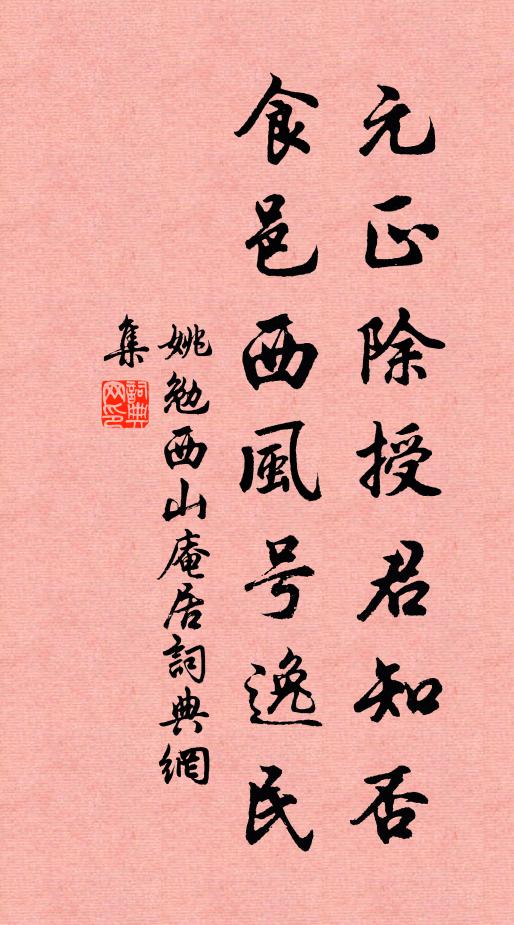 元正除授君知否
食邑西風号逸民
姚勉西山庵居詞典網
集
詞典网印